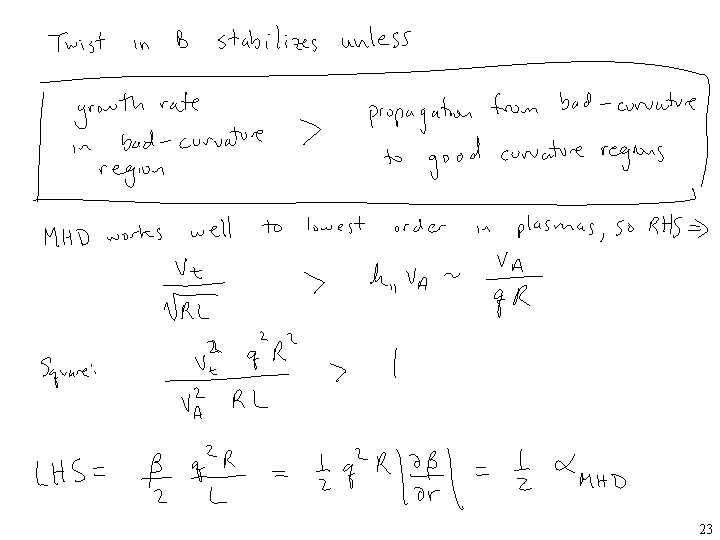 Twist in B stabilizes unless
growth rate in bad-curvature region > propagation from bad-curvature to good curvature regions
MHD works well to lowest order in plasmas, so RHS ⇒
v_t / √(RL) > k_∥ v_A ~ v_A / (qR)
Square: (v_t² q² R²) / (v_A² R L) > 1
LHS = (β/2) (q² R / L) = ½ q² R |∂β/∂r| = ½ α_MHD
23